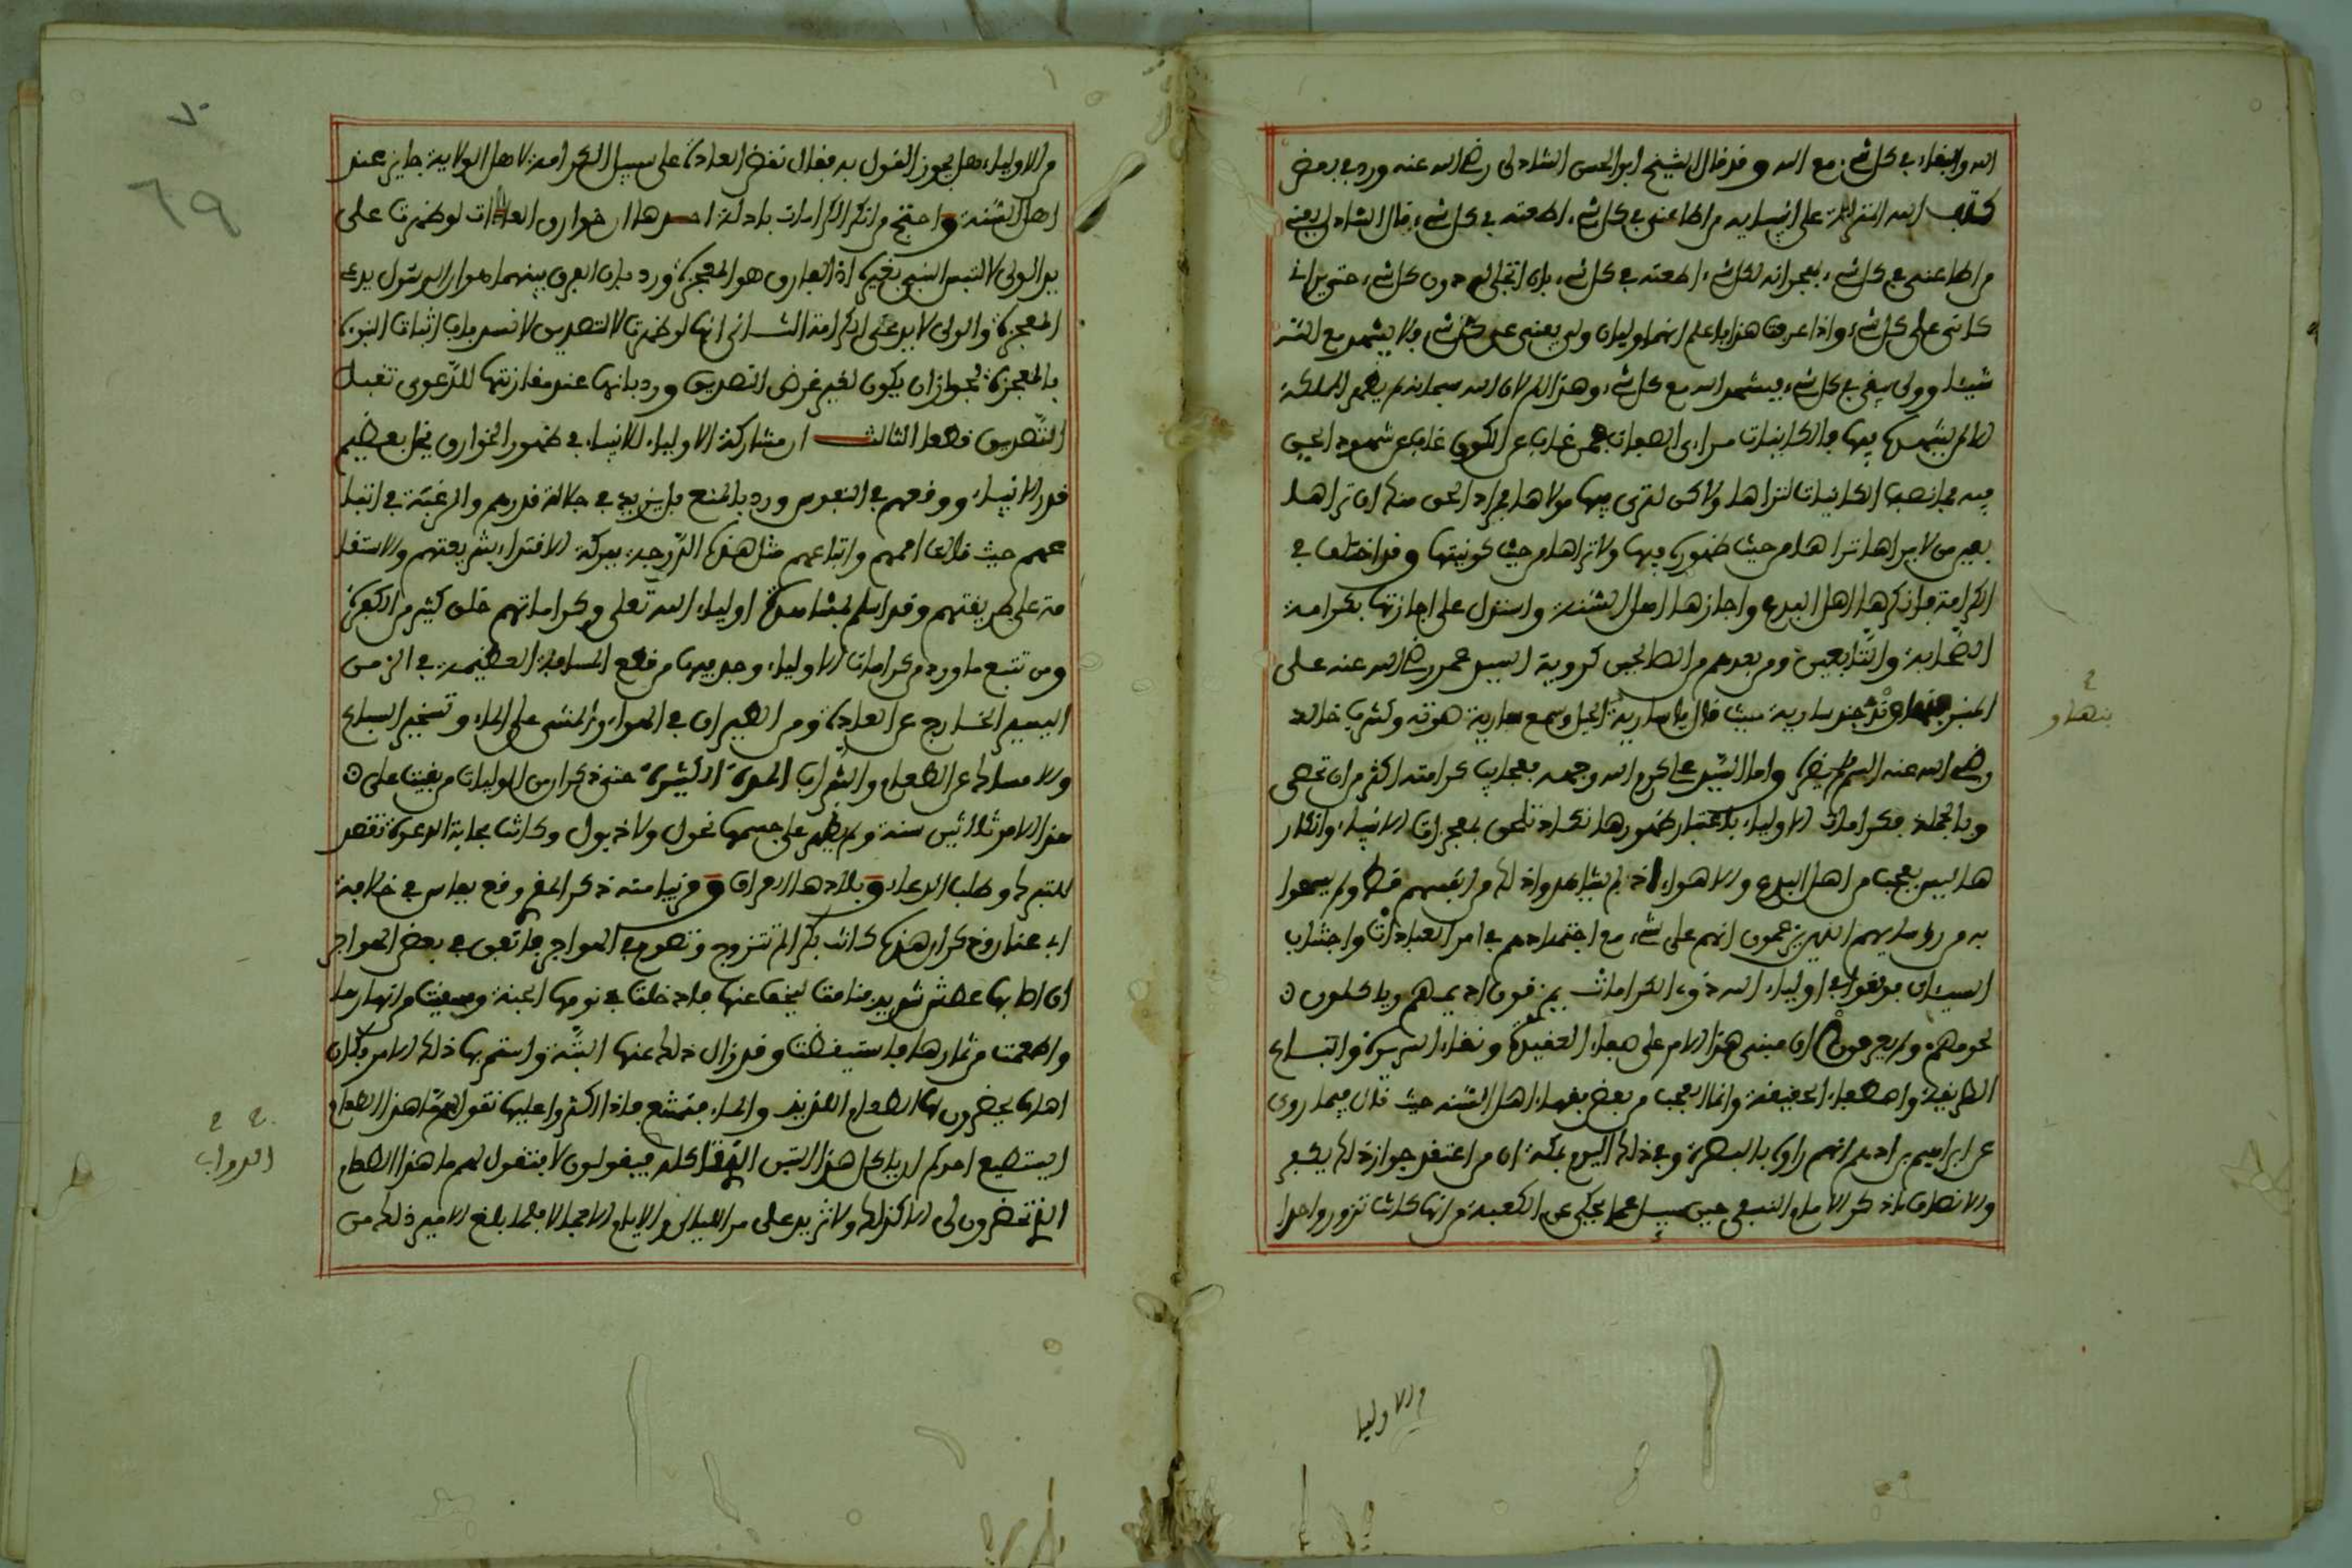 الله والبقاء في كل شيء مع الله وقد قال الشيخ ابو الحسن الشاذلي رضي الله عنه ورد في بعض
كتب الله المنزلة على انبيايه من اطاعني في كل شيء اطعته في كل شيء قال الشاذلي يعني
من اطاعني في كل شيء بهجرانه لكل شيء اطعته في كل شيء بان اتجلى له دون كل شيء حتى يراني
كاني على كل شيء واذا عرفت هذا فاعلم انهما وليان ولي يفنى عن كل شيء فلا يشهد مع الله
شيئا وولي يبقى في كل شيء فيشهد الله مع كل شيء وهذا اتم لان الله سبحانه لم يظهر المملكة
الا لم يشهد بها فيها فالكاينات مراءي الصفات فمن غاب عن الكون غاب عن شهود الحق
فيه فما نصبت الكاينات لتراها ولاكن لترى فيها مولاها فمراد الحق منك ان تراها
بعين من لا يراها تراها من حيث ظهوره فيها ولا تراها من حيث كونيتها وقد اختلف في
الكرامة فانكرها اهل البدع واجازها اهل السنة واستدل على اجازتها بكرامة
الصحابة والتابعين ومن بعدهم من الصالحين كروية السيد عمر رضي الله عنه على
المنبر جند سارية حيث قال يا سارية الجبل وسمع سارية صوته وكشرب خالد
رضي الله عنه السم ولم يضره واما السيد علي كرم الله وجهه فعجايب كرامته اكثر من ان تحصى
وبالجملة فكرامات الاولياء باعتبار ظهورها تكاد تلحق بمعجزات الانبياء وانكار
ها ليس بعجب من اهل البدع والاهواء اذ لم يشاهدوا ذلك من انفسهم قط ولم يسمعوا
به من روسايهم الذين يزعمون انهم على شيء مع اجتهادهم في امر العبادات واجتناب
السيئات فوقعوا في اولياء الله ذوي الكرامات يمزقون اديمهم وياكلون
لحومهم ولم يعرفوا ان مبنى هذا الامر على صفاء العقيدة ونقاء السريرة واتباع
الطريقة واصطفاء الحقيقة وانما العجب من بعض فقهاء اهل السنة حيث قال فيما روي
عن ابراهيم بن ادهم انهم راوه بالبصرة وفي ذلك اليوم بمكة ان من اعتقد جواز ذلك يكفر
والانصاف ما ذكر الامام النسفي حين سيل عما يحكى عن الكعبة من انها كانت تزور واحدا
ح
بنهاو
والاوليا
٧٠
٦٩
من الاولياء هل يجوز القول به فقال نقض العادة على سبيل الكرامة لاهل الولاية جايز عند
اهل السنة واحتج من انكر الكرامات بادلة احدها ان خوارق العادات لو ظهرت على
يد الولي لالتبس النبي بغيره اذ الفارق هو المعجزة ورد بان الفرق بينهما هو ان الرسول يدعي
المعجزة والولي لا يدعي الكرامة الثاني انها لو ظهرت لا لتصديق لانسد باب اثبات النبوة
بالمعجزة لجواز ان يكون لغير غرض التصديق ورد بانها عند مقارنتها للدعوى تفيد
التصديق قطعا الثالث ان مشاركة الاولياء للانبياء في ظهور الخوارق يخل بعظيم
قدر الانبياء ووقعهم في النفوس ورد بالمنع بل يزيد في جلالة قدرهم والرغبة في اتبا
عهم حيث نالت اممهم واتباعهم مثل هذه الدرجة ببركة الاقتداء بشريعتهم والاستقا
مة على طريقتهم وقد اسلم لمشاهدة اولياء الله تعلى وكراماتهم خلق كثير من الكفرة
ومن تتبع ما ورد من كرامات الاولياء وجد فيها من قطع المسافة العظيمة في الزمن
اليسير الخارج عن العادة ومن الطيران في الهواء والمشي على الماء وتسخير السباع
والامساك عن الطعام والشراب المدة الكثيرة حتى ذكر ان من الوليات من بقيت على
هذا الامر ثلاثين سنة ولم يظهر على جسمها نحول ولا ذبول وكانت مجابة الدعوة تقصد
للتبرك وطلب الدعاء وبلادها العراق وقريبا منه ذكر انه وقع بفاس في خلافة
ابي عنان وذكر ان هذه كانت بكرا لم تتزوج وتصوم في الهواجر فاتفق في بعض الهواجر
ان اصابها عطش شديد فنامت ليخف عنها فادخلت في نومها الجنة وسقيت من انهارها
واطعمت من ثمارها فاستيقظت وقد زال ذلك عنها البتة واستمر بها ذلك الامر فكان
اهلها يحضرون لها الطعام اللذيذ والماء فتمتنع فاذا اكثروا عليها تقول لهم ما هذا الطعام
ايستطيع احدكم ان ياكل هذا التبن الذي اكله فيقولون لا فتقول لهم ما هذا الطعام
الذي تحضرون لي الا كذلك ولا تزيد على مر الليالي والايام الا جمالا فلما بلغ الامير ذلك من
ح ح
الدواب